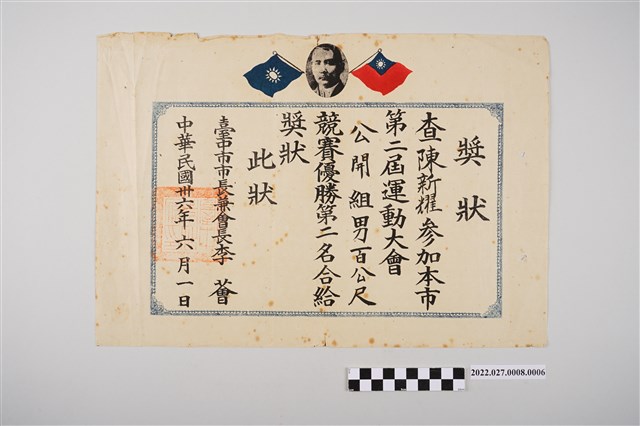 獎狀
查陳新耀參加本市
第二屆運動大會
公開組男百公尺
競賽優勝第二名合給
獎狀
此狀
臺中市市長兼會長李薈
中華民國卅六年六月一日
2022.027.0008.0006